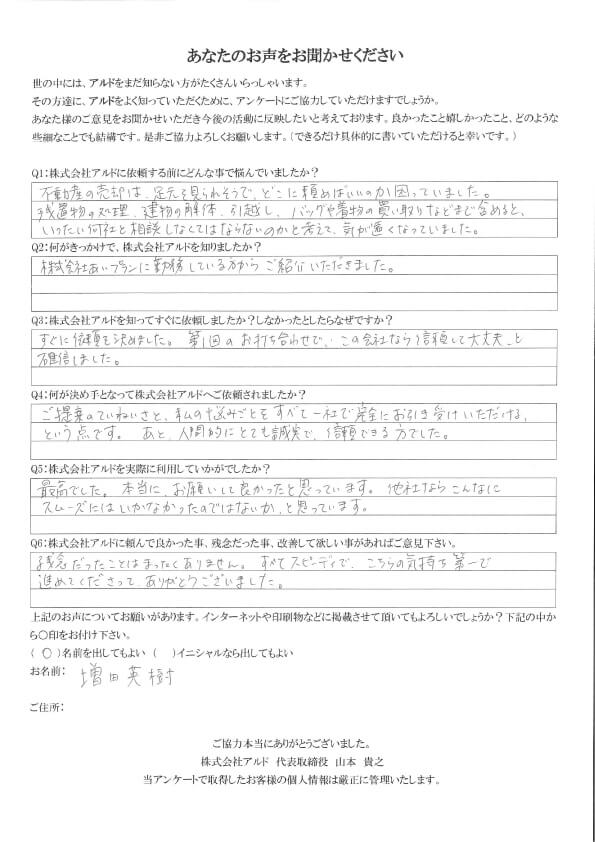 あなたのお声をお聞かせください
世の中には、アルドをまだ知らない方がたくさんいらっしゃいます。
その方達に、アルドをよく知っていただくために、アンケートにご協力していただけますでしょうか。
あなた様のご意見をお聞かせいただき今後の活動に反映したいと考えております。良かったこと嬉しかったこと、どのような
些細なことでも結構です。是非ご協力よろしくお願いします。（できるだけ具体的に書いていただけると幸いです。）
Q1:株式会社アルドに依頼する前にどんな事で悩んでいましたか？
不動産の売却は、足元を見られそうで、どこに頼めばいいのか困っていました。
残置物の処理、建物の解体、引越し、バッグや着物の買い取りなどまで含めると、
いったい何社と相談しなくてはならないのかと考えて、気が遠くなっていました。
Q2:何がきっかけで、株式会社アルドを知りましたか？
株式会社あいプランに勤務している方からご紹介いただきました。
Q3:株式会社アルドを知ってすぐに依頼しましたか？しなかったとしたらなぜですか？
すぐに依頼を決めました。第1回のお打ち合わせで、この会社なら信頼して大丈夫、と
確信しました。
Q4:何が決め手となって株式会社アルドへご依頼されましたか？
ご提案のていねいさと、私の悩みごとをすべて一社で完全にお引き受けいただける、
という点です。あと、人間的にとても誠実で、信頼できる方でした。
Q5:株式会社アルドを実際に利用していかがでしたか？
最高でした。本当に、お願いして良かったと思っています。他社ならこんなに
スムーズにはいかなかったのではないか、と思っています。
Q6:株式会社アルドに頼んで良かった事、残念だった事、改善して欲しい事があればご意見下さい。
残念だったことはまったくありません。すべてスピーディで、こちらの気持ち第一で
進めてくださって、ありがとうございました。
上記のお声についてお願いがあります。インターネットや印刷物などに掲載させて頂いてもよろしいでしょうか？下記の中か
ら〇印をお付け下さい。
（ 〇 ）名前を出してもよい （ ）イニシャルなら出してもよい
お名前： 増田英樹
ご住所：
ご協力本当にありがとうございました。
株式会社アルド 代表取締役 山本 貴之
当アンケートで取得したお客様の個人情報は厳正に管理いたします。